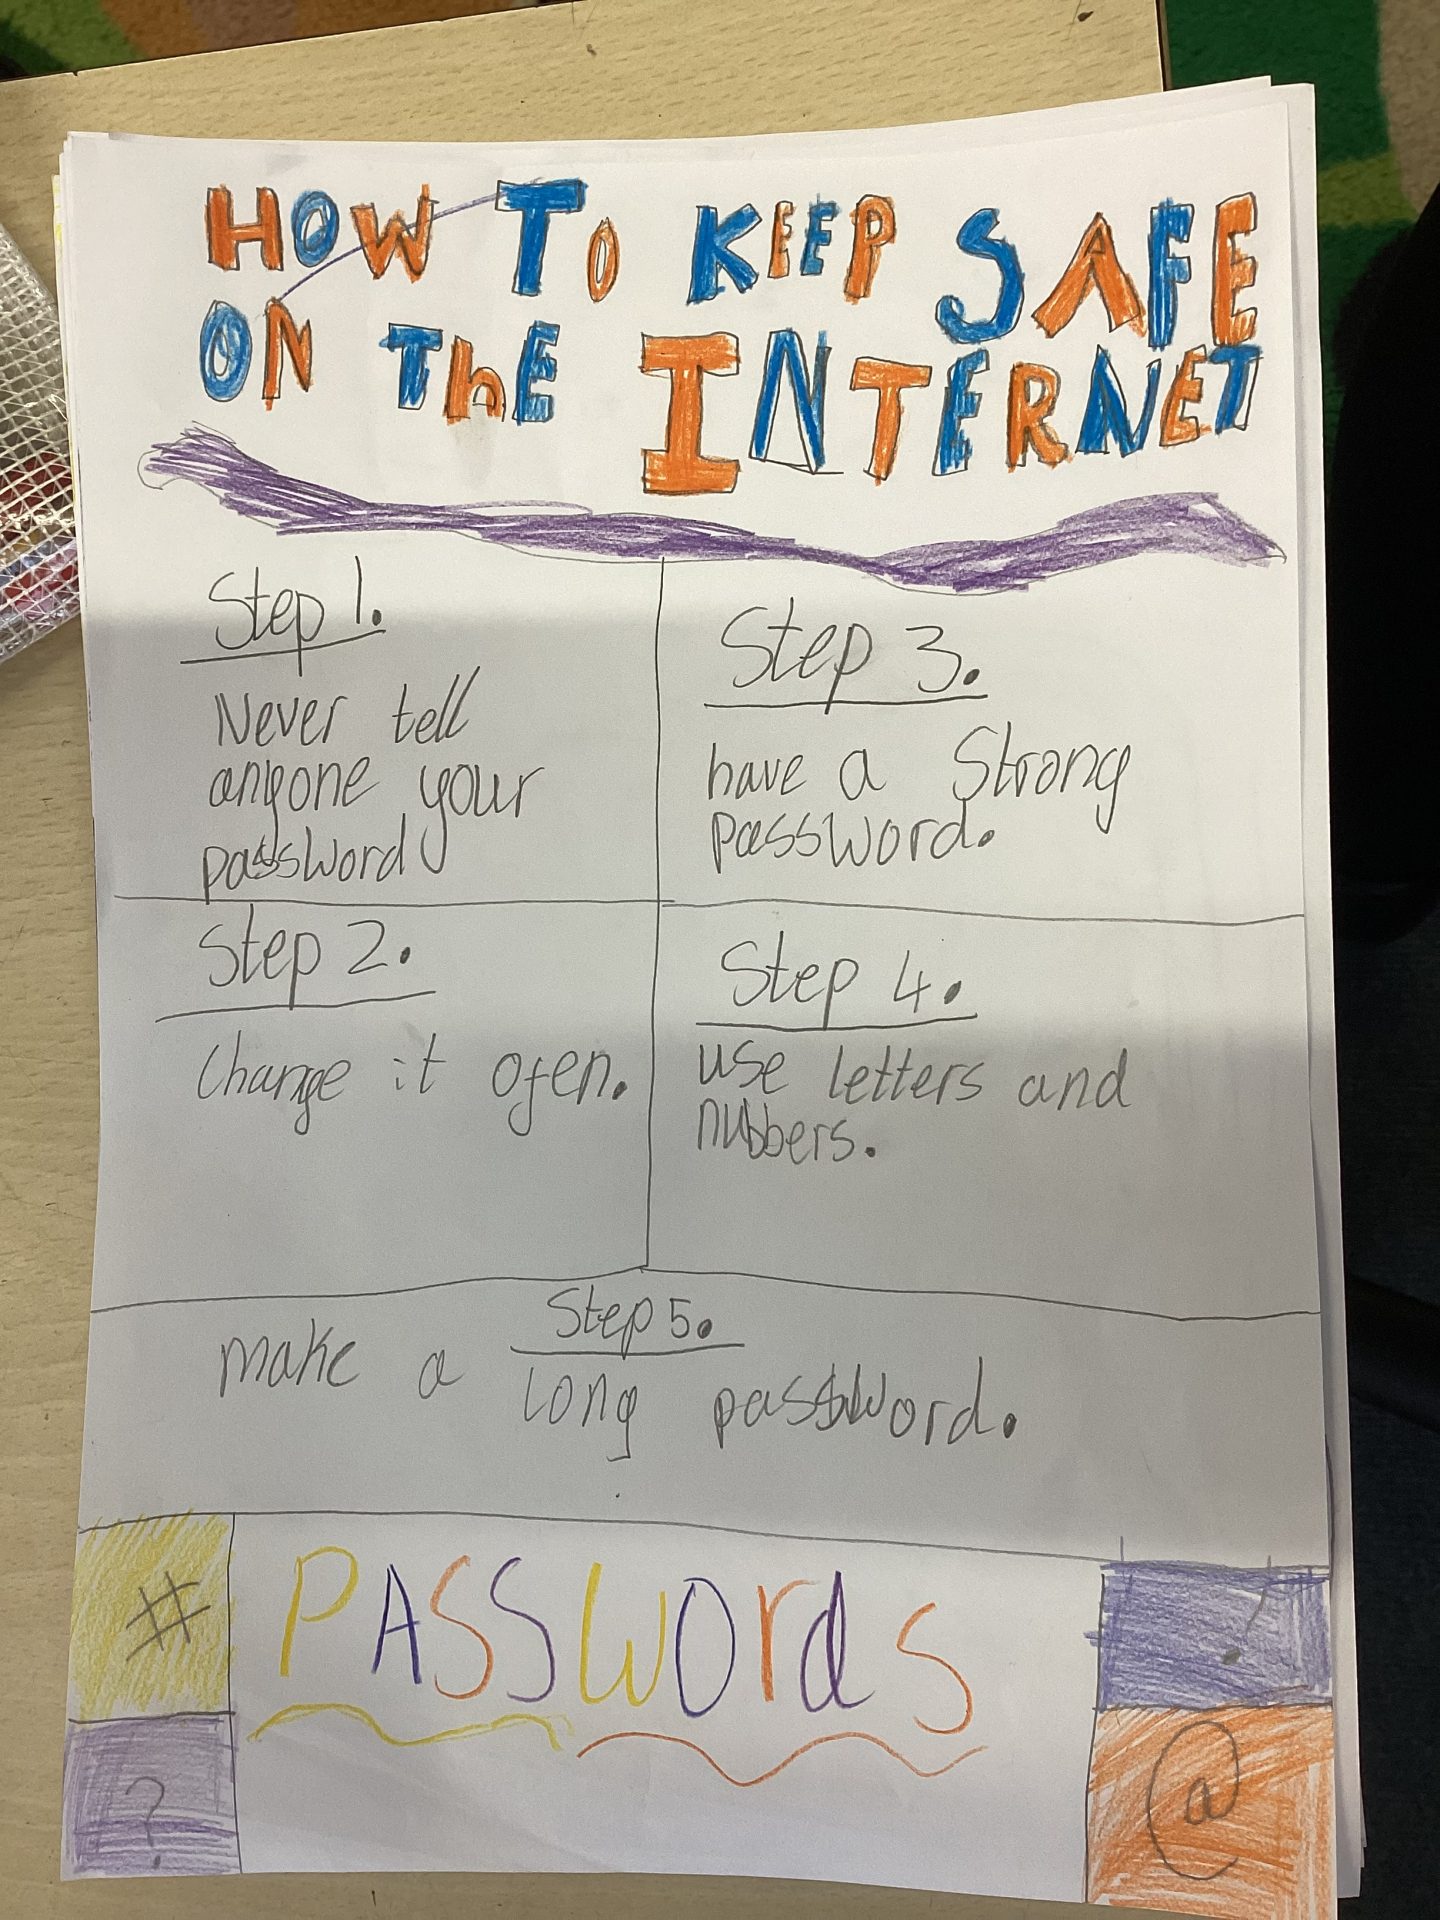 HOW TO KEEP SAFE
ON THE INTERNET
Step 1.
Never tell
anyone your
password
Step 2.
Change it ofen.
Step 3.
have a Strong
password.
Step 4.
use letters and
nubbers.
Step 5.
make a long password.
#
?
PASSWOrdS
!
@